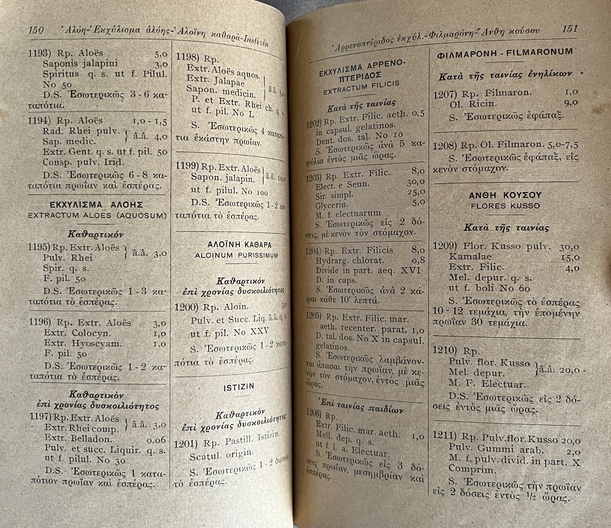 150 Ἀλόη-Ἐκχύλισμα ἀλόης-Ἀλοΐνη καθαρά-Istizin
1193) Rp. Aloës 5,0
Saponis jalapini 3,0
Spiritus q. s. ut f. Pilul.
No 50
D.S. Ἐσωτερικῶς 3-6 κα-
ταπότια.
1194) Rp. Aloës 1,0 - 1,5
Rad. Rhei pulv.
Sap. medic. } ā.ā. 4,0
Extr. Gent. q. s. ut f. pil. 50
Consp. pulv. Irid.
D.S. Ἐσωτερικῶς 6-8 κα-
ταπότια πρωΐαν καὶ ἑσπέρας.
ΕΚΧΥΛΙΣΜΑ ΑΛΟΗΣ
EXTRACTUM ALOES (AQUOSUM)
Καθαρτικόν
1195) Rp. Extr. Aloës
Pulv. Rhei } ā.ā. 3,0
Spir. q. s.
F. pil. 50
D.S. Ἐσωτερικῶς 1-3 κα-
ταπότια τὸ ἑσπέρας.
1196) Rp. Extr. Aloës 3,0
Extr. Colocyn. 1,0
Extr. Hyoscyam. 1,0
F. pil. 50
D.S. Ἐσωτερικῶς 1-2 κα-
ταπότια τὸ ἑσπέρας.
Καθαρτικὸν
ἐπὶ χρονίας δυσκοιλιότητος
1197) Rp. Extr. Aloës
Extr. Rhei comp. } ā.ā. 3,0
Extr. Belladon. 0,06
Pulv. et succ. Liquir. q. s.
ut f. pilul. No 30
D.S. Ἐσωτερικῶς 1 κατα-
πότιον πρωΐαν καὶ ἑσπέρας.
1198) Rp.
Extr. Aloës aquos.
Extr. Jalapae
Sapon. medicin.
P. et Extr. Rhei
ut f. pil. No L
S. Ἐσωτερικῶς 4
τια ἑκάστην πρωΐαν.
1199) Rp. Extr. Aloës
Sapon. jalapin.
ut f. pilul. No 100
D.S. Ἐσωτερικῶς 1-2
πότια τὸ ἑσπέρας.
ΑΛΟΪΝΗ ΚΑΘΑΡΑ
ALOINUM PURISSIMUM
Καθαρτικὸν
ἐπὶ χρονίας δυσκοιλιότητος
1200) Rp. Aloïn.
Pulv. et Succ. Liq.
ut f. pil. No XXV
S. Ἐσωτερικῶς 1-2
πότια τὸ ἑσπέρας.
ISTIZIN
Καθαρτικὸν
ἐπὶ χρονίας δυσκοιλιότητος
1201) Rp. Pastill. Istizin
Scatul. origin.
S. Ἐσωτερικῶς 1-2
τὸ ἑσπέρας.
Ἀρρενοπτέριδος ἐκχύλ.-Φιλμαρόνη-Ἄνθη κούσου 151
ΕΚΧΥΛΙΣΜΑ ΑΡΡΕΝΟ-
ΠΤΕΡΙΔΟΣ
EXTRACTUM FILICIS
Κατὰ τῆς ταινίας
1202) Rp. Extr. Filic. aeth. 0,5
in capsul. gelatinos.
Dent. dos. tal. No 10
S. Ἐσωτερικῶς ἀνὰ 5 κα-
ψύλια ἐντὸς μιᾶς ὥρας.
1203) Rp. Extr. Filic. 8,0
Elect. e Senn. 30,0
Sir. simpl. 25,0
Glycerin. 5,0
M. f electuarum
S. Ἐσωτερικῶς εἰς 2 δό-
σεις, μὲ κενὸν τὸν στόμαχον.
1204) Rp. Extr. Filicis 8,0
Hydrarg. chlorat. 0,8
Divide in part. aeq. XVI
D. in caps.
S. Ἐσωτερικῶς ἀνὰ 2 κά-
ψαι κάθε 10' λεπτά.
1205) Rp. Extr. Filic. mar.
aeth. recenter. parat. 1,0
D. tal. dos. No X in capsul.
gelatinos.
S. Ἐσωτερικῶς λαμβάνον-
ται ἅπασαι τὴν πρωΐαν, μὲ κε-
νὸν τὸν στόμαχον, ἐντὸς μιᾶς
ὥρας.
Ἐπὶ ταινίας παιδίων
1206) Rp.
Extr. Filic. mar. aeth. 1,0
Mell. dep. q. s.
ut f. l. a. Electuar.
S. Ἐσωτερικῶς εἰς 3 δό-
σεις πρωΐαν, μεσημβρίαν καὶ
ἑσπέρας.
ΦΙΛΜΑΡΟΝΗ - FILMARONUM
Κατὰ τῆς ταινίας ἐνηλίκων
1207) Rp. Filmaron. 1,0
Ol. Ricin. 9,0
S. Ἐσωτερικῶς ἐφάπαξ.
1208) Rp. Ol. Filmaron. 5,0-7,5
S. Ἐσωτερικῶς ἐφάπαξ, εἰς
κενὸν στόμαχον.
ΑΝΘΗ ΚΟΥΣΟΥ
FLORES KUSSO
Κατὰ τῆς ταινίας
1209) Flor. Kusso pulv. 30,0
Kamalae 15,0
Extr. Filic. 4,0
Mel. depur. q. s.
ut f. boli No 60
S. Ἐσωτερικῶς τὸ ἑσπέρας
10-12 τεμάχια, τὴν ἑπομένην
πρωΐαν 30 τεμάχια.
1210) Rp.
Pulv. flor. Kusso
Mel. depur. } ā.ā. 20,0
M. F. Electuar.
S. Ἐσωτερικῶς εἰς 2 δό-
σεις ἐντὸς μιᾶς ὥρας.
1211) Rp. Pulv. flor. Kusso 20,0
Pulv. Gummi arab. 2,0
M. f. pulv. divid. in part. X
Comprim.
S. Ἐσωτερικῶς τὴν πρωΐαν
εἰς 2 δόσεις ἐντὸς ½ ὥρας.